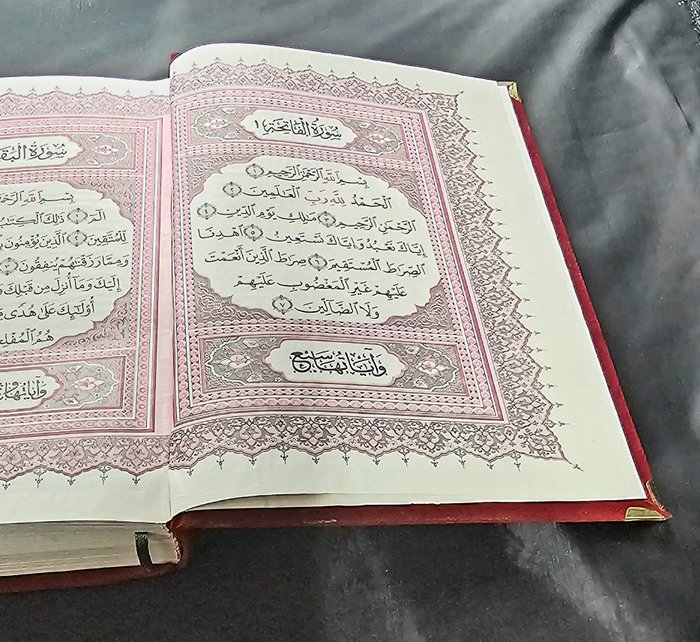 سُورَةُ الْفَاتِحَةِ ١
بِسْمِ اللَّهِ الرَّحْمَٰنِ الرَّحِيمِ ۝١
الْحَمْدُ لِلَّهِ رَبِّ الْعَالَمِينَ ۝٢
الرَّحْمَٰنِ الرَّحِيمِ ۝٣ مَالِكِ يَوْمِ الدِّينِ ۝٤
إِيَّاكَ نَعْبُدُ وَإِيَّاكَ نَسْتَعِينُ ۝٥ اهْدِنَا
الصِّرَاطَ الْمُسْتَقِيمَ ۝٦ صِرَاطَ الَّذِينَ أَنْعَمْتَ
عَلَيْهِمْ غَيْرِ الْمَغْضُوبِ عَلَيْهِمْ
وَلَا الضَّالِّينَ ۝٧
وَآيَاتُهَا سَبْعٌ
سُورَةُ
بِسْمِ اللَّهِ
الٓمٓ ۝١ ذَٰلِكَ الْكِتَابُ
لِلْمُتَّقِينَ ۝٢ الَّذِينَ يُؤْمِنُونَ
وَمِمَّا رَزَقْنَاهُمْ يُنْفِقُونَ ۝٣
إِلَيْكَ وَمَا أُنْزِلَ مِنْ قَبْلِكَ
أُولَٰئِكَ عَلَىٰ هُدًى
هُمُ
وَآيَاتُهَا